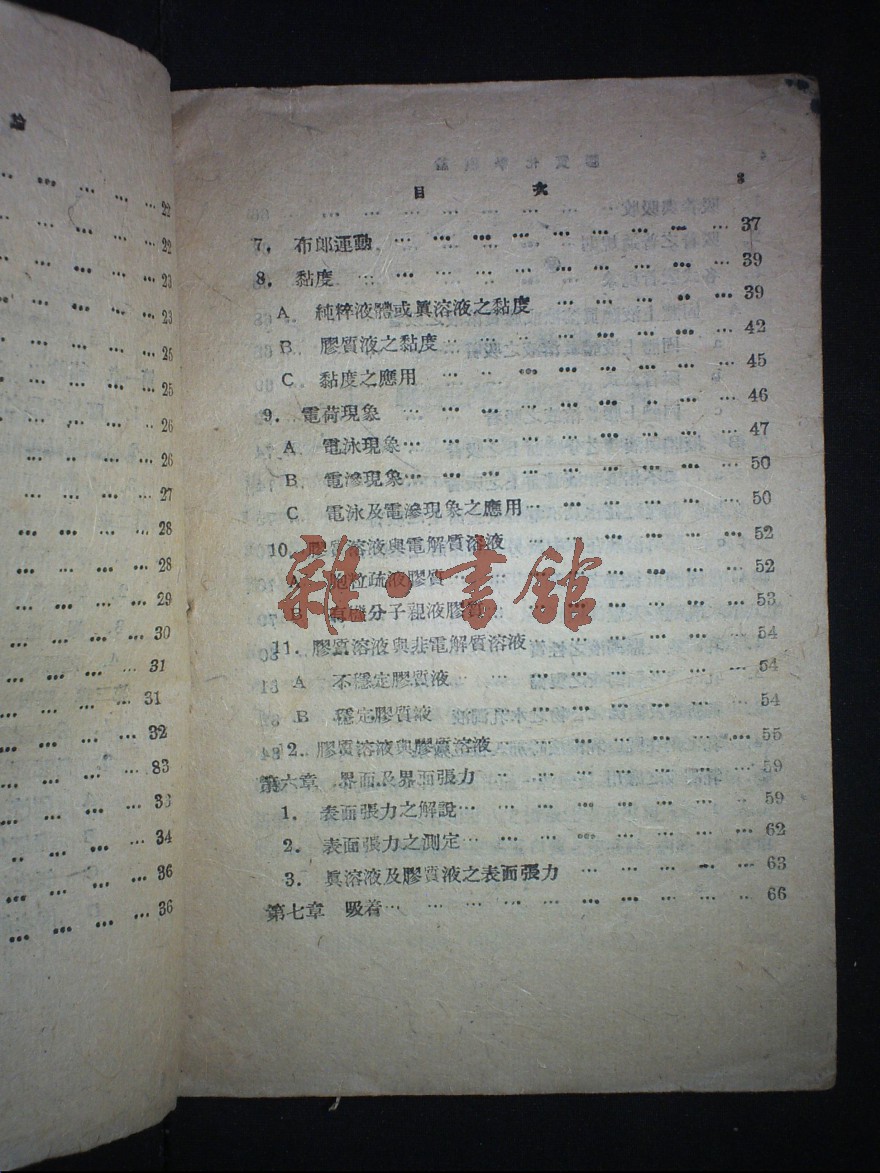 論
22
22
23
23
25
25
26
26
27
28
28
29
30
31
31
32
83
33
34
36
36
目 次 3
7. 布郎運動 … 37
8. 黏度 … 39
A 純粹液體或眞溶液之黏度 … 39
B 膠質液之黏度 … 42
C 黏度之應用 … 45
9. 電荷現象 … 46
A 電泳現象 … 47
B 電滲現象 … 50
C 電泳及電滲現象之應用 … 50
10. 膠質溶液與電解質溶液 … 52
A 胞粒疏液膠質 … 52
B 有機分子親液膠質 … 53
11. 膠質溶液與非電解質溶液 … 54
A 不穩定膠質液 … 54
B 穩定膠質液 … 54
12. 膠質溶液與膠質溶液 … 55
第六章 界面及界面張力 … 59
1. 表面張力之解說 … 59
2. 表面張力之測定 … 62
3. 眞溶液及膠質液之表面張力 … 63
第七章 吸着 … 66
雜·書館